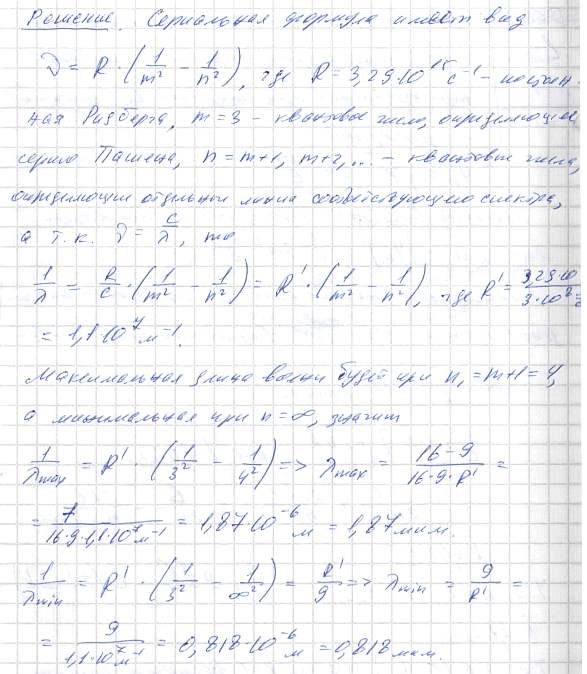 Решение. Сериальная формула имеет вид
ν = R · (1/m² − 1/n²), где R = 3,29·10¹⁵ с⁻¹ – постоян-
ная Ридберга, m = 3 – квантовое число, определяющее
серию Пашена, n = m+1, m+2, ... – квантовые числа,
определяющие отдельные линии соответствующего спектра,
а т.к. ν = c/λ, то
1/λ = R/c · (1/m² − 1/n²) = R' · (1/m² − 1/n²), где R' = 3,29·10 / 3·10⁸ =
= 1,1·10⁷ м⁻¹.
Максимальная длина волны будет при n₁ = m+1 = 4,
а минимальная при n = ∞, значит
1/λmax = R' · (1/3² − 1/4²) => λmax = 16−9 / 16·9·R' =
= 7 / 16·9·1,1·10⁷ м⁻¹ = 1,87·10⁻⁶ м = 1,87 мкм.
1/λmin = R' · (1/3² − 1/∞²) = R'/9 => λmin = 9/R' =
= 9 / 1,1·10⁷ м⁻¹ = 0,818·10⁻⁶ м = 0,818 мкм.